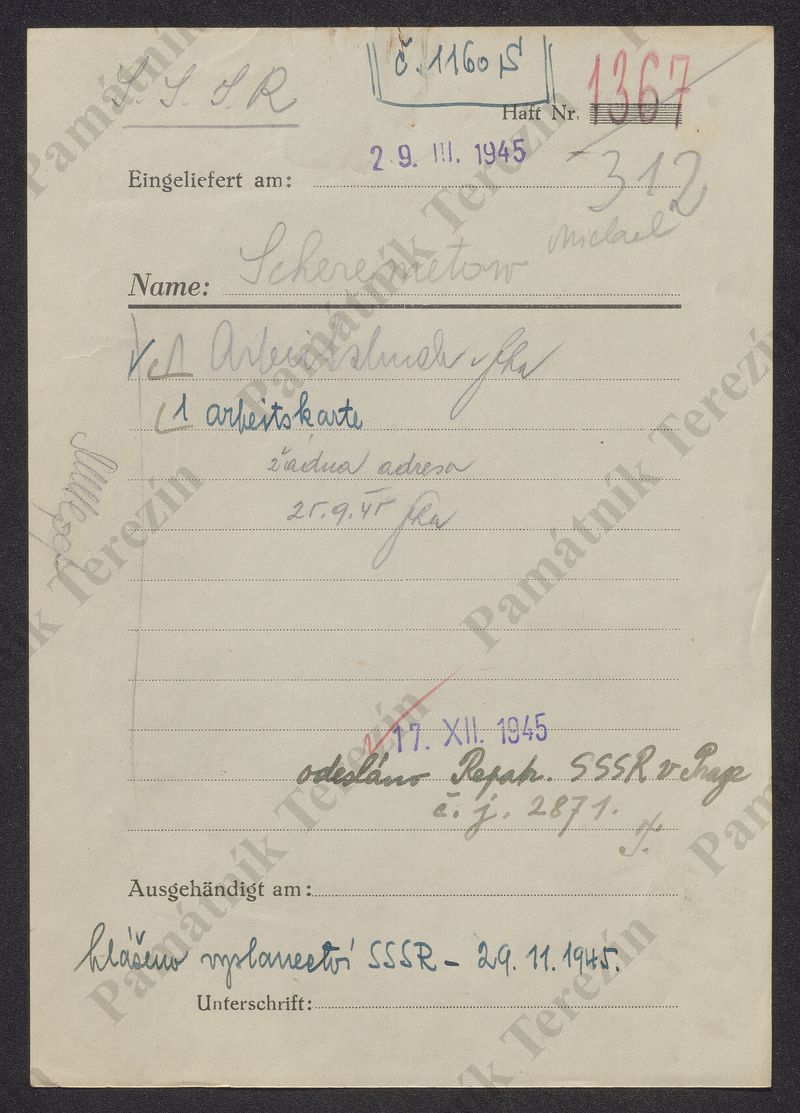 S. S. S. R
č. 1160/S
Haft Nr. 1367
29. III. 1945
312
Eingeliefert am:
Michael
Name: Scheremetow
1 Arbeitsbuch
1 arbeitskarte
žádná adresa
25.9.45
17. XII. 1945
odesláno Repatr. SSSR v Praze
č. j. 2871.
Ausgehändigt am:
hlášeno vyslanectví SSSR – 29. 11. 1945.
Unterschrift:
Památník Terezín
Památník Terezín
Památník Terezín
Památník Terezín
Památník Terezín
Památník Terezín